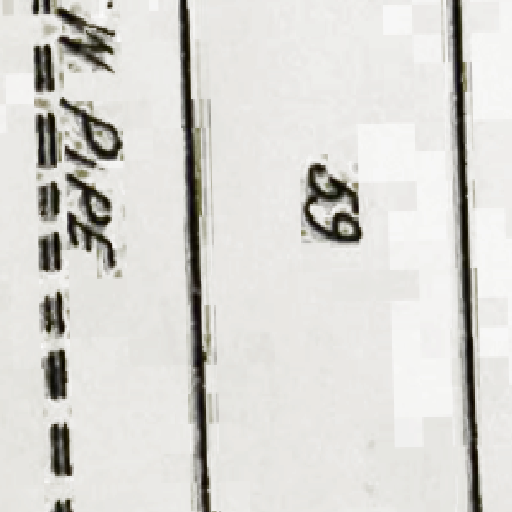 W. PIPE
59